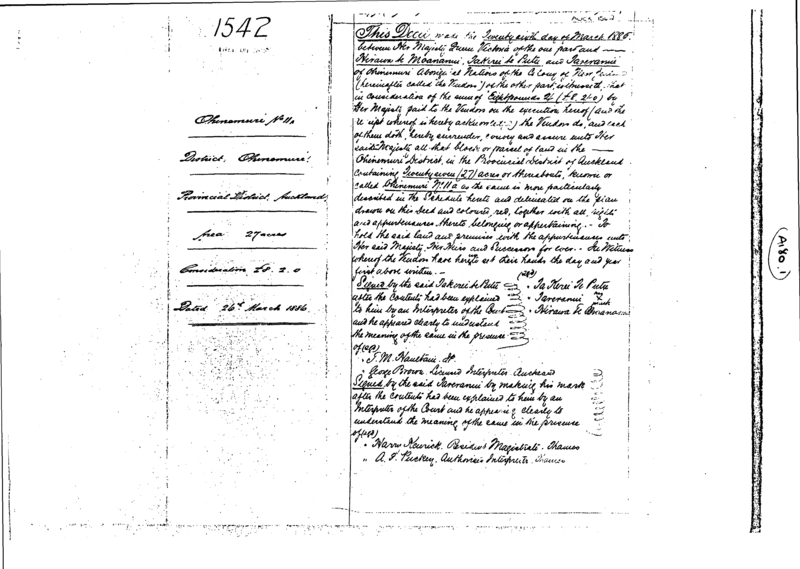 1542
Ohinemuri No 11a
District, Ohinemuri
Provincial District, Auckland
Area 27 acres
Consideration £8. 2. 0
Dated 26th March 1886
This Deed made the Twenty sixth day of March 1886
between Her Majesty Queen Victoria of the one part and
Hirawa te Moananui, Takerei te Putu and Taveranui
of Ohinemuri aboriginal Natives of the Colony of New
(hereinafter called the Vendors) of the other part, witnesseth that
in consideration of the sum of Eight pounds 2/ (£8. 2. 0) by
Her Majesty paid to the Vendors on the execution hereof (and the
receipt whereof is hereby acknowledged) the Vendors do, and each
of them doth, hereby surrender, convey and assure unto Her
said Majesty all that block or parcel of land in the
Ohinemuri District, in the Provincial District of Auckland
containing Twenty seven (27) acres or thereabouts, known or
called Ohinemuri No 11a as the same is more particularly
described in the Schedule hereto and delineated on the plan
drawn on this deed and coloured red, together with all rights
and appurtenances thereto belonging or appertaining. - To
hold the said land and premises with the appurtenances unto
Her said Majesty, Her Heirs and Successors for ever. - In Witness
whereof the Vendors have hereto set their hands the day and year
first above written. -
Signed by the said Takerei te Putu
after the contents had been explained
to him by an Interpreter of the Court
and he appeared clearly to understand
the meaning of the same in the presence
of
Ta Kerei Te Putu
Taveranui
mark
Hirawa te Moananui
George Brown, Licensed Interpreter Auckland
Signed by the said Taveranui by making his mark
after the contents had been explained to him by an
Interpreter of the Court and he appearing clearly to
understand the meaning of the same in the presence
of
Harry Kenrick, Resident Magistrate, Thames
" A. F. Puckey, Authorised Interpreter, Thames
(A80.1)